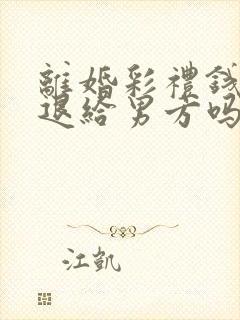 離婚彩禮錢
退給男方嗎
江凱